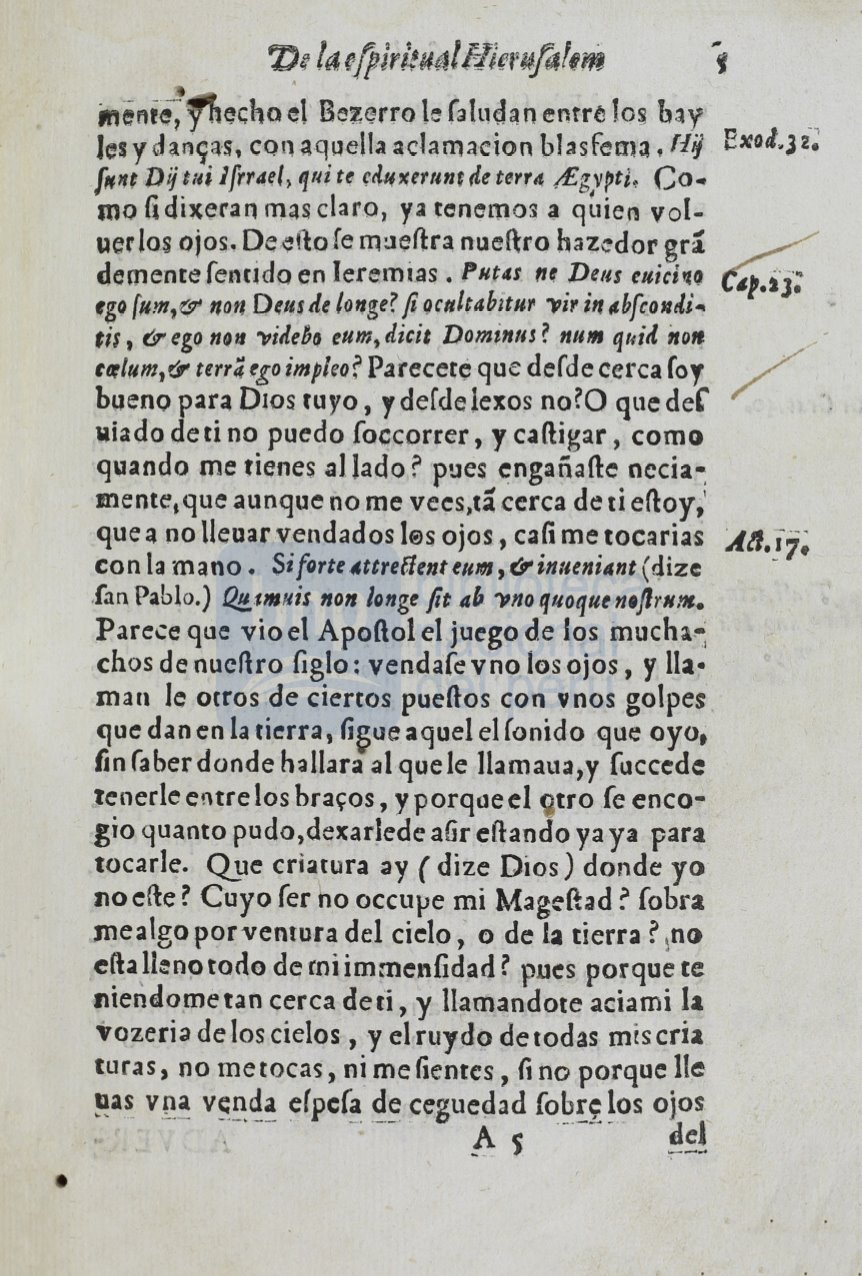 De la eſpiritual Hieruſalem 5
mente, y hecho el Bezerro le ſaludan entre los bay
les y danças, con aquella aclamacion blasfema. Hij
ſunt Dij tui Iſrrael, qui te eduxerunt de terra Ægypti. Co-
mo ſi dixeran mas claro, ya tenemos a quien vol-
uer los ojos. De eſto ſe mueſtra nueſtro hazedor grã
demente ſentido en Ieremias. Putas ne Deus euicino
ego ſum, & non Deus de longe? ſi ocultabitur vir in abſcondi-
tis, & ego non videbo eum, dicit Dominus? num quid non
cœlum, & terrã ego impleo? Parecete que deſde cerca ſoy
bueno para Dios tuyo, y deſde lexos no? O que deſ
uiado de ti no puedo ſoccorrer, y caſtigar, como
quando me tienes al lado? pues engañaſte necia-
mente, que aunque no me vees, tã cerca de ti eſtoy,
que a no lleuar vendados los ojos, caſi me tocarias
con la mano. Si forte attrectent eum, & inueniant (dize
ſan Pablo.) Quamuis non longe ſit ab vno quoque noſtrum.
Parece que vio el Apoſtol el juego de los mucha-
chos de nueſtro ſiglo: vendaſe vno los ojos, y lla-
man le otros de ciertos pueſtos con vnos golpes
que dan en la tierra, ſigue aquel el ſonido que oyo,
ſin ſaber donde hallara al que le llamaua, y ſuccede
tenerle entre los braços, y porque el otro ſe enco-
gio quanto pudo, dexarle de aſir eſtando ya ya para
tocarle. Que criatura ay (dize Dios) donde yo
no eſte? Cuyo ſer no occupe mi Mageſtad? ſobra
me algo por ventura del cielo, o de la tierra? no
eſta lleno todo de mi immenſidad? pues porque te
niendome tan cerca de ti, y llamandote acia mi la
vozeria de los cielos, y el ruydo de todas mis cria
turas, no me tocas, ni me ſientes, ſi no porque lle
uas vna venda eſpeſa de ceguedad ſobre los ojos
A 5 del
Exod.32.
Cap.23.
Act.17.